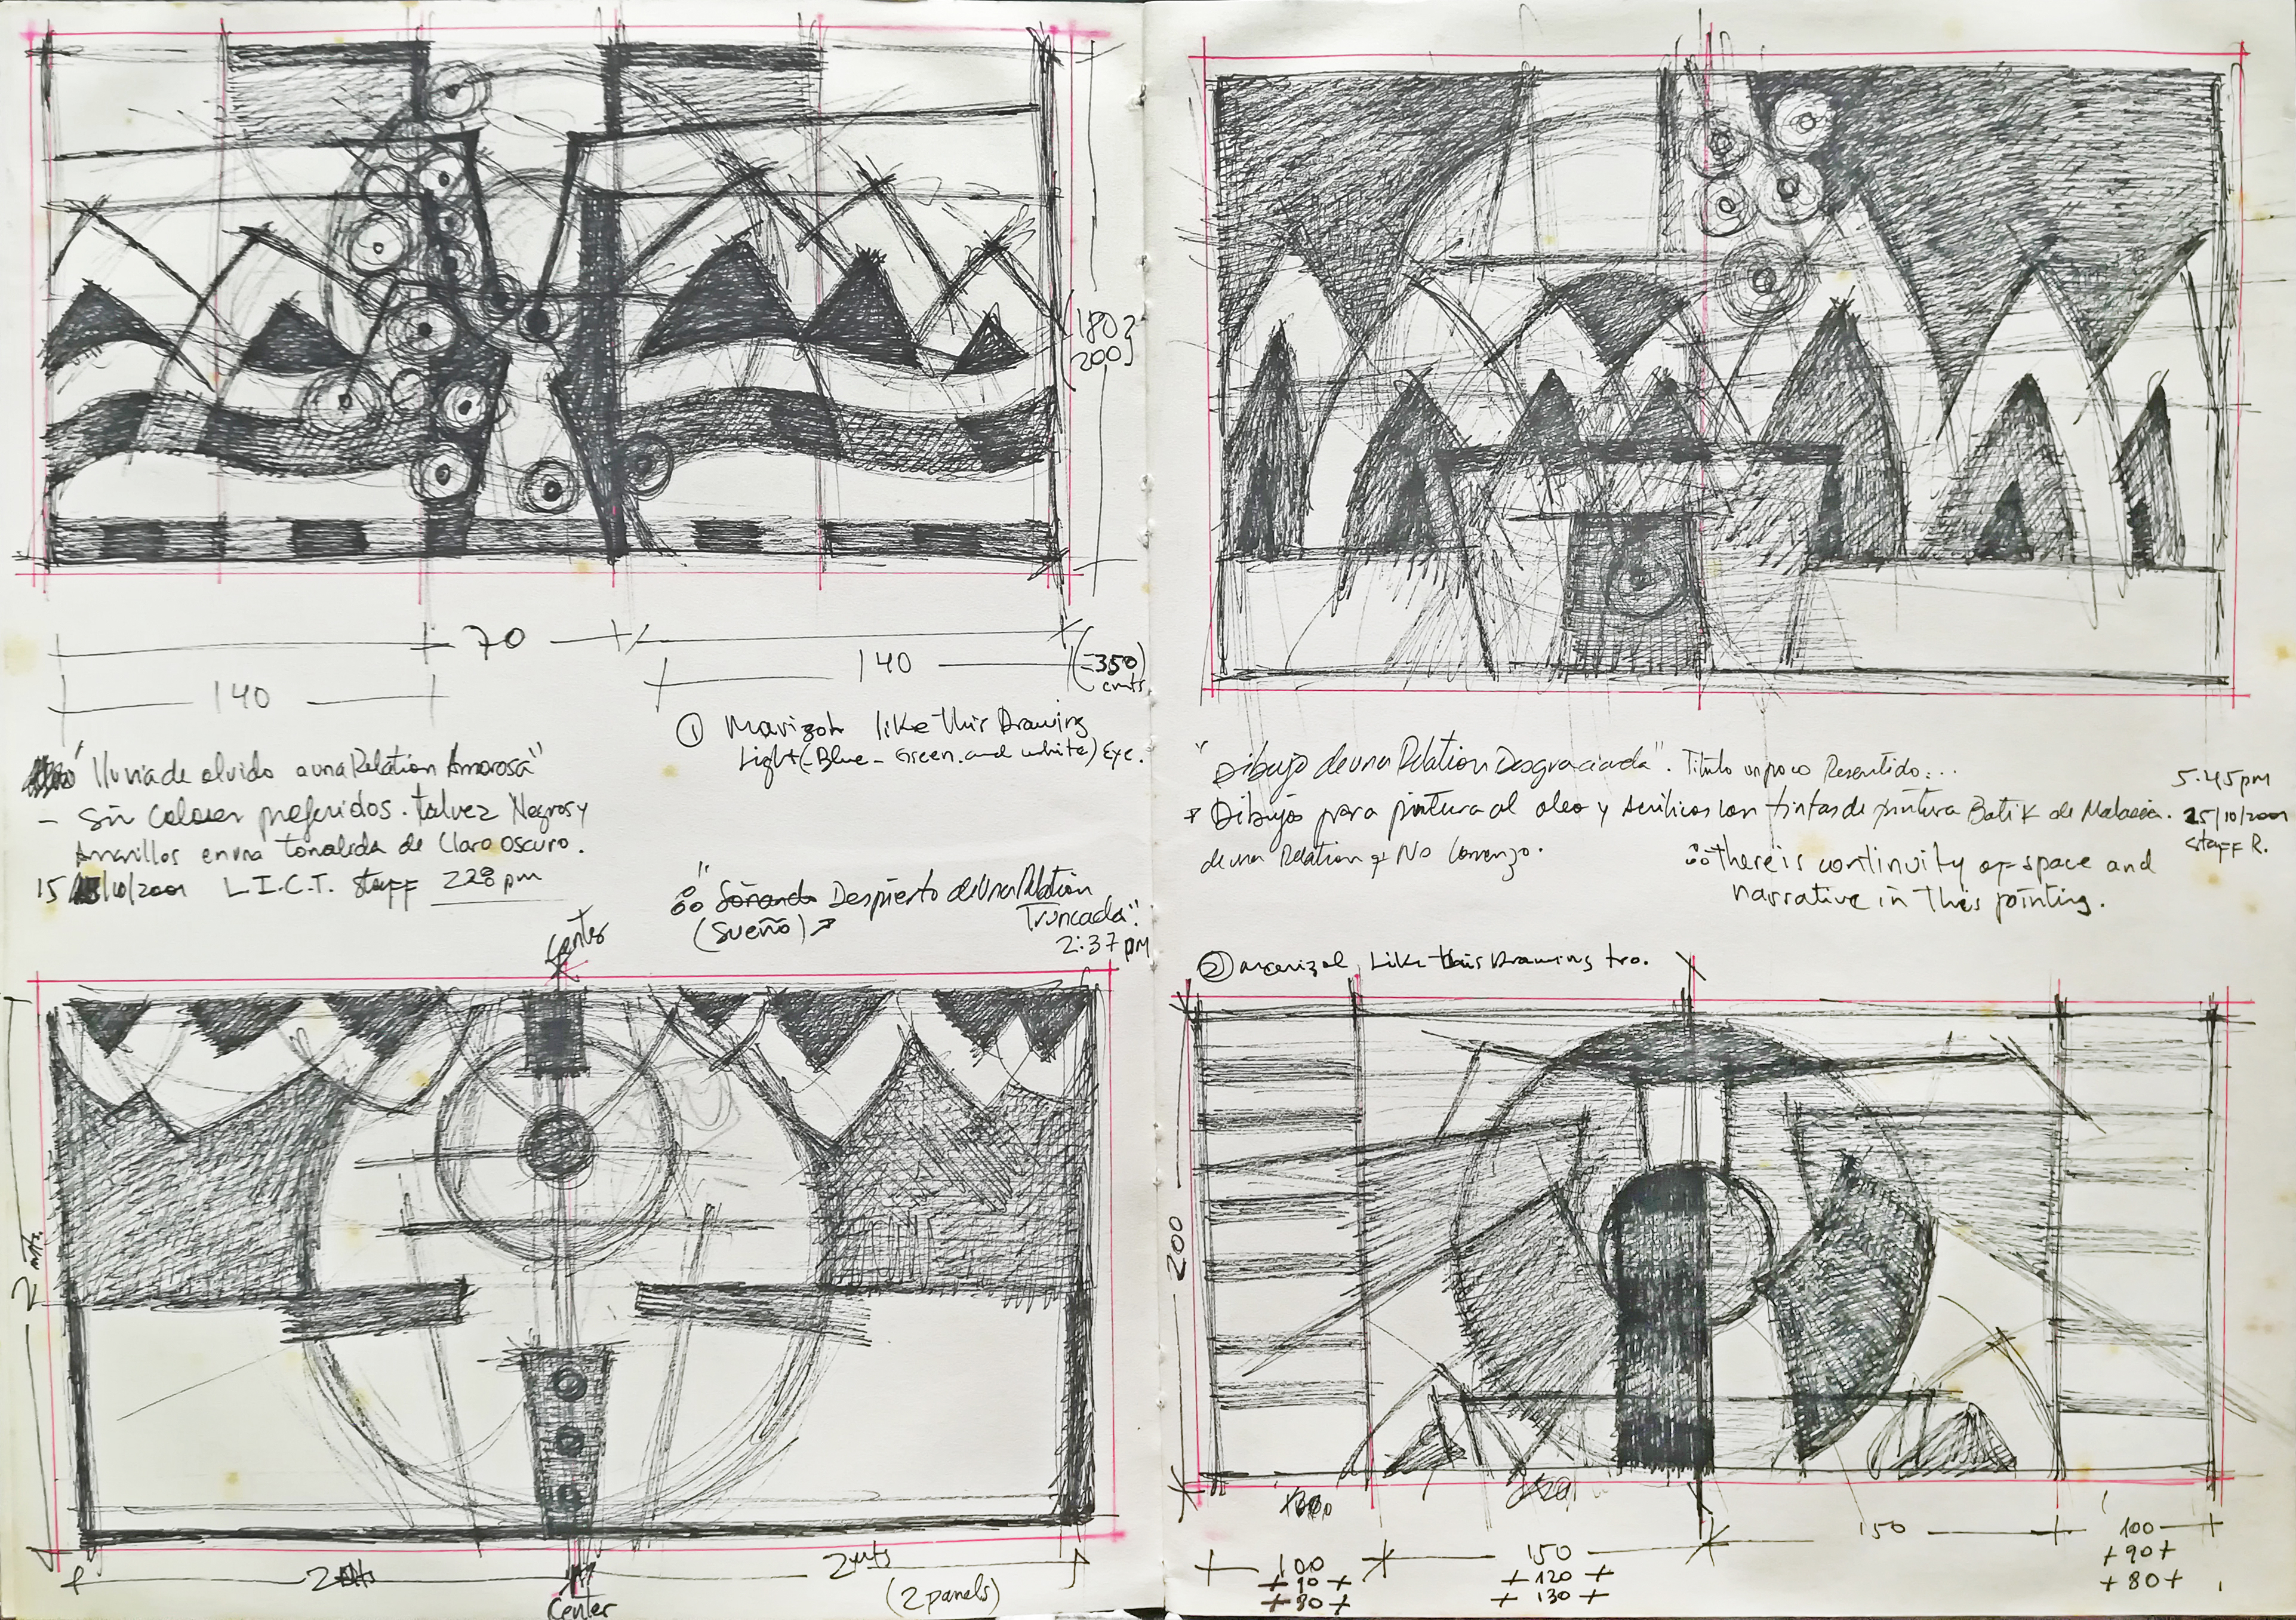 180}
200}
70
140
140
(=350)
cmts
① Marizol like this Drawing
Light (-Blue - Green. and white) Eye.
"lluvia de olvido a una Relation Amorosa"
- Sin Colores preferidos. talvez Negros y
Amarillos en una tonalida de Claro oscuro.
15/10/2001 L.I.C.T. Staff 228 pm
"Soñando Despierto de Una Relation
(Sueño) Truncada".
2:37 pm
Center
2 mts.
2 mts
2 mts
(2 panels)
Center
"Dibujo de una Relation Desgraciada". Titulo un poco Resentido...
Dibujo para pintura al oleo y Acrilicos con tintas de pintura Batik de Malasia.
de una Relation q No Comenzo.
5.45pm
25/10/2001
Staff R.
there is continuity of space and
narrative in this painting.
② Marizol Like this Drawing too.
200
100
+90+
+80+
150
+120+
+130+
150
100
+90+
+80+